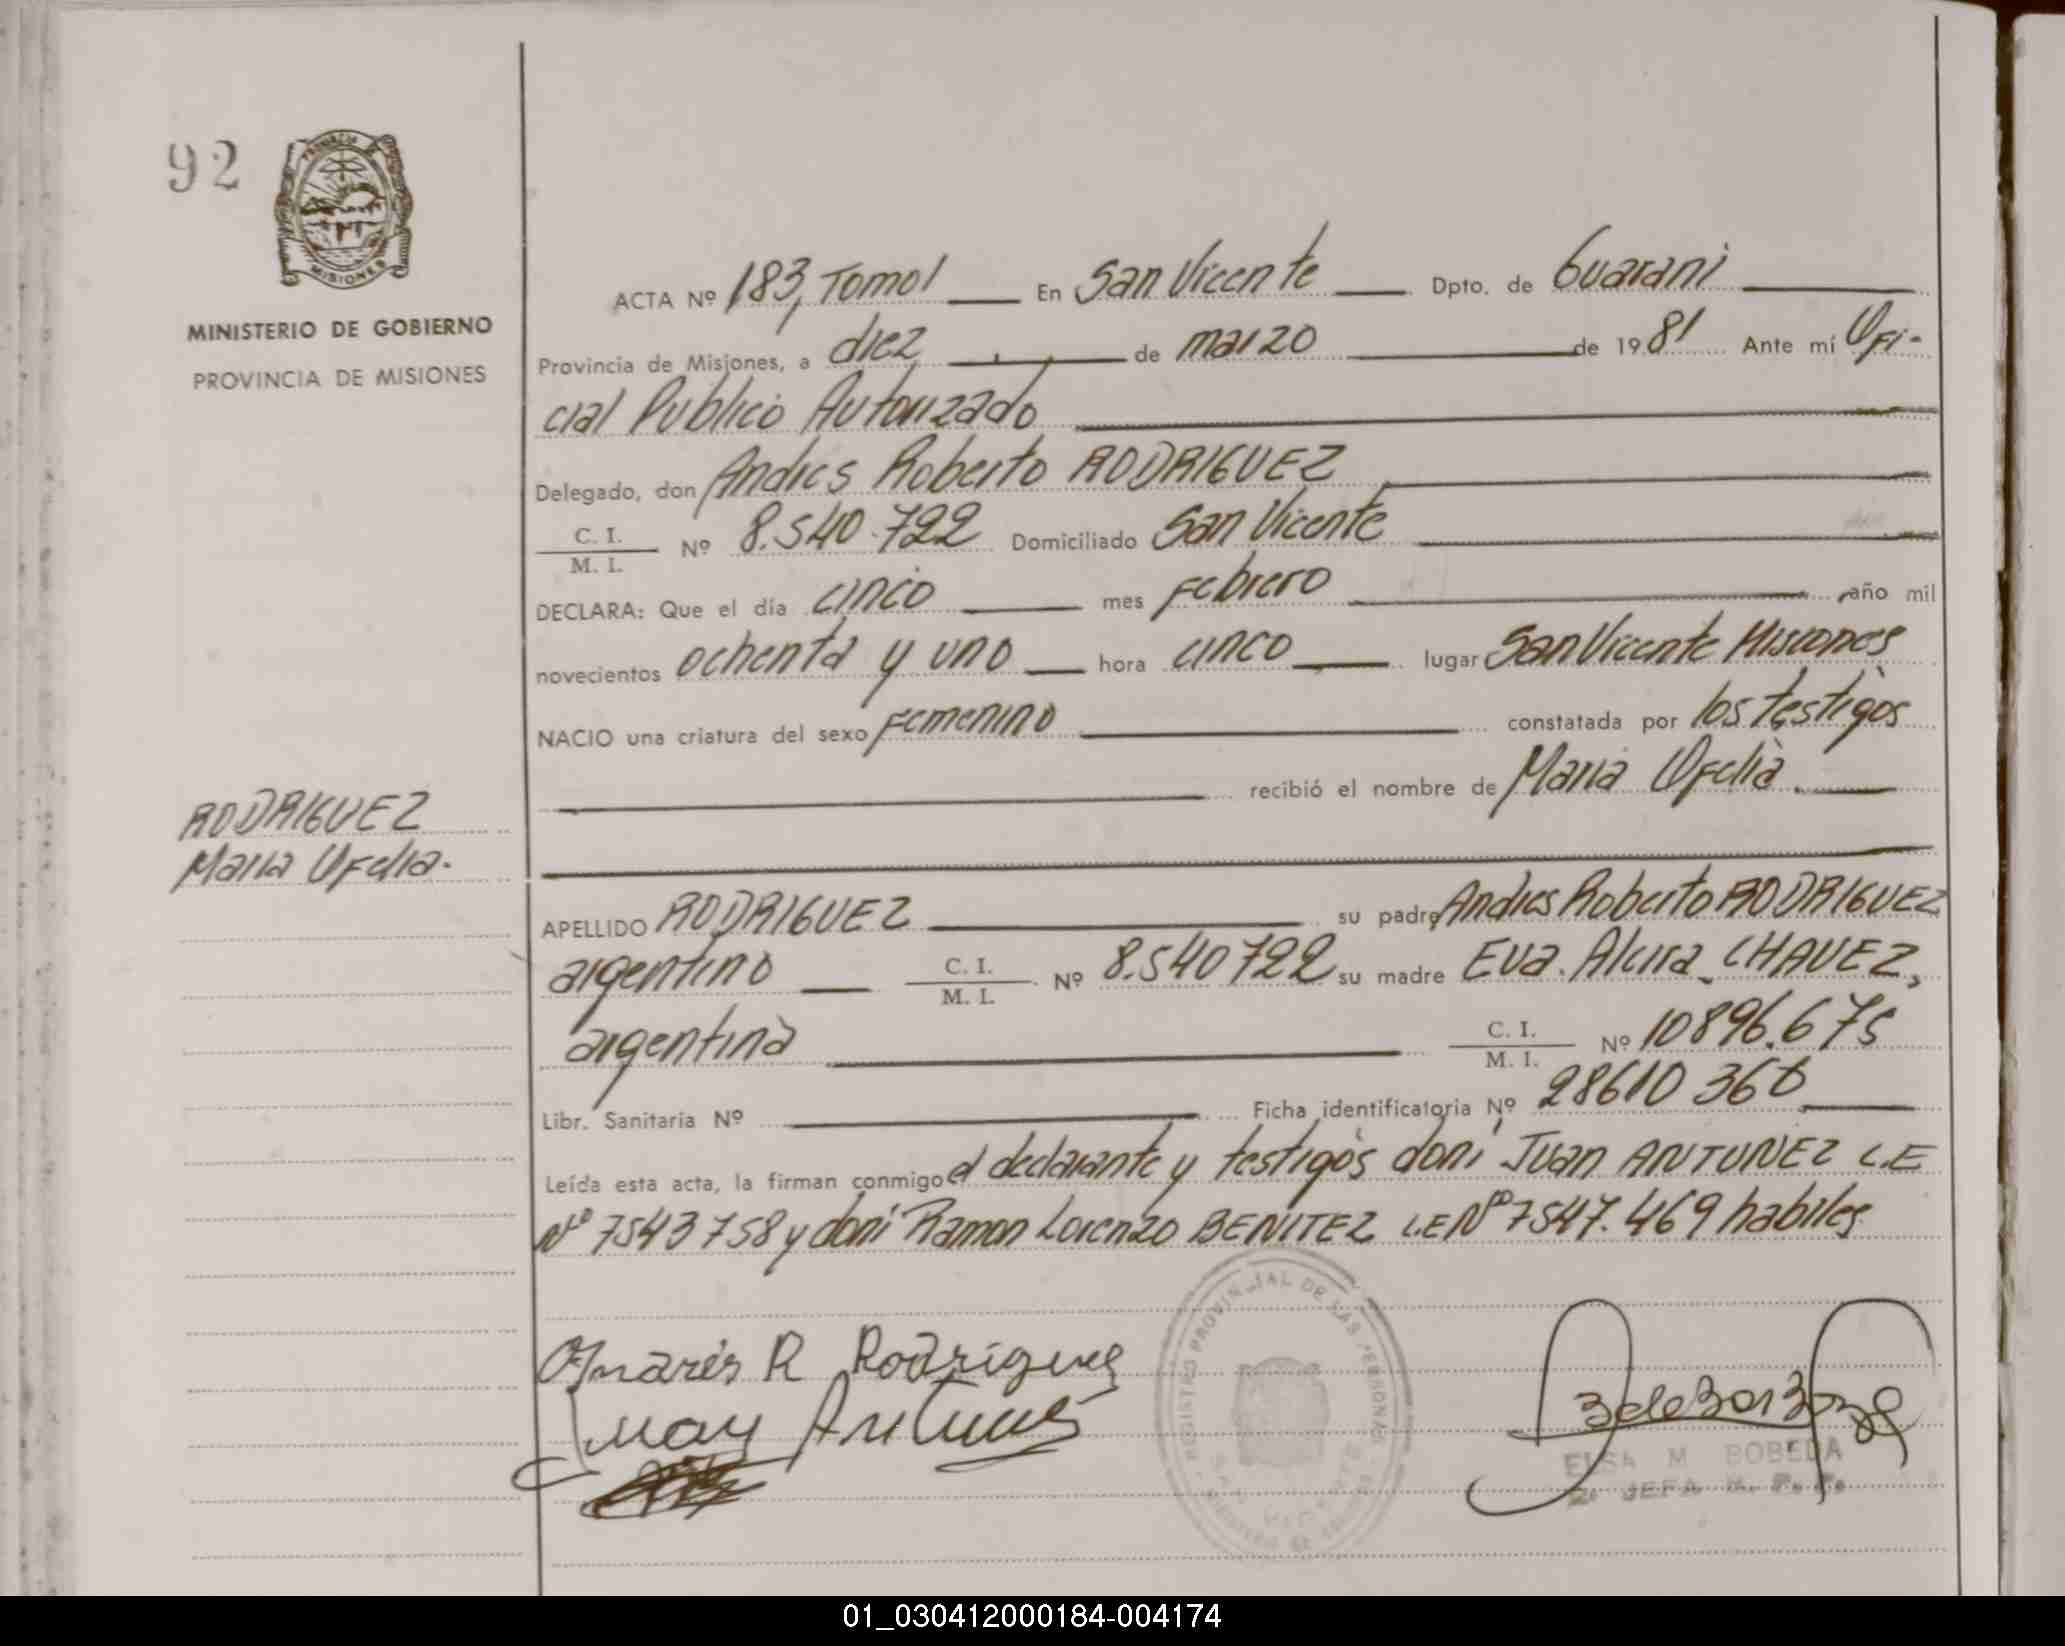 92
PROVINCIA DE
MISIONES
MINISTERIO DE GOBIERNO
PROVINCIA DE MISIONES
ACTA Nº 183, Tomo I En San Vicente Dpto. de Guarani
Provincia de Misiones, a diez de marzo de 1981 Ante mí Ofi-
cial Publico Autorizado
Delegado, don Andres Roberto RODRIGUEZ
C. I.
M. I. Nº 8.540.722 Domiciliado San Vicente
DECLARA: Que el día cinco mes Febrero año mil
novecientos ochenta y uno hora cinco lugar San Vicente Misiones
NACIO una criatura del sexo Femenino constatada por los testigos
recibió el nombre de Maria Ofelia.
RODRIGUEZ
Maria Ofelia.
APELLIDO RODRIGUEZ su padre Andres Roberto RODRIGUEZ
argentino C. I. M. I. Nº 8.540722 su madre Eva Alcira CHAVEZ,
argentina C. I. M. I. Nº 10896.675
Libr. Sanitaria Nº Ficha identificatoria Nº 28610 366
Leída esta acta, la firman conmigo el declarante y testigos don: Juan ANTUNEZ L.E
Nº 7543758 y don: Ramon Lorenzo BENITEZ L.E Nº 7547.469 habiles
REGISTRO PROVINCIAL DE LAS PERSONAS
SAN VICENTE
Andrés R Rodriguez
Juan Antunes
ELSA M BOBEDA
JEFA
01_030412000184-004174